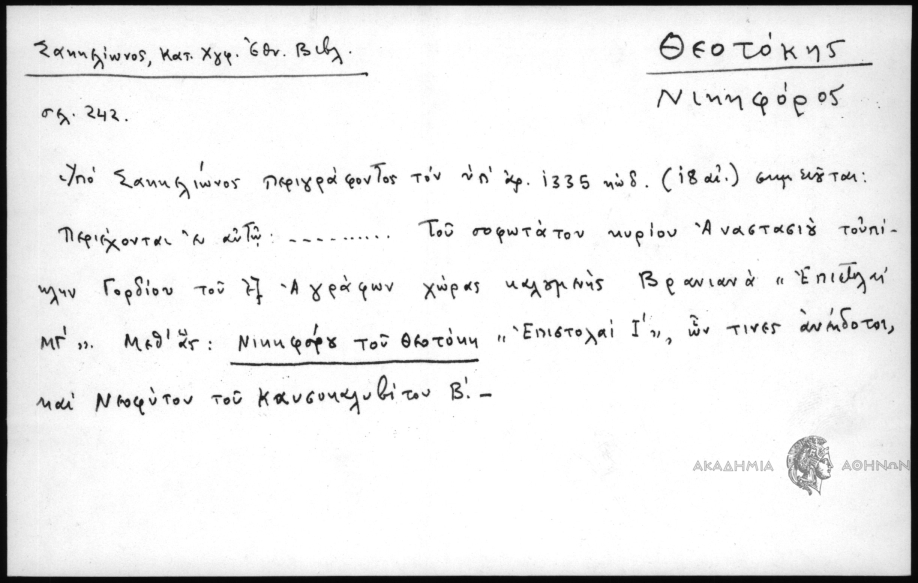 Σακκελίωνος, Κατ. Χγφ. Ἐθν. Βιβλ.
Θεοτόκης
Νικηφόρος
σελ. 242.
Ὑπό Σακκελίωνος περιγράφοντος τόν ὑπ' ἀρ. 1335 κώδ. (18 αἰ.) σημειοῦται:
Περιέχονται ἐν αὐτῷ: .......... Τοῦ σοφωτάτου κυρίου Ἀναστασίου τοὐπί-
κλην Γορδίου τοῦ ἐξ Ἀγράφων χώρας καλουμένης Βρανιανά "Ἐπιστολαί
". Μεθ' ἅς: Νικηφόρου τοῦ Θεοτόκη "Ἐπιστολαί Ι'", ὧν τινες ἀνέκδοτοι,
καί Νεοφύτου τοῦ Καυσοκαλυβίτου Β'. –
ΑΚΑΔΗΜΙΑ ΑΘΗΝΩΝ